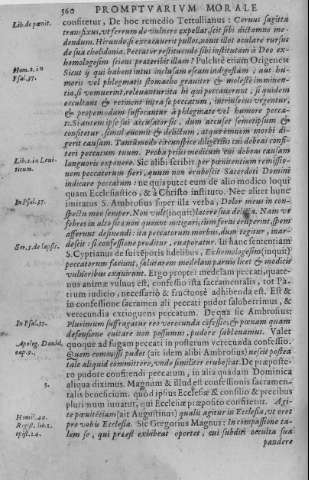 560 PROMPTVARIVM MORALE
Lib. de pœnit.
confitetur. De hoc remedio Tertullianus: Ceruus sagitta
transfixus, vt ferrum de vulnere expellat, scit sibi dictamo me-
dendum. Hirundo si excæcauerit pullos, nouit illos oculare rursus
de sua chelidonia. Peccator restituendo sibi institutam à Deo ex-
homologesim sciens præteribit illam? Pulchrè etiam Origenes:
Hom. 2. in
Psal. 37.
Sicut ij qui habent intus inclusam escam indigestam aut hu-
moris vel phlegmatis stomacho grauiter & molestè imminen-
tia, si vomuerint, releuantur: ita hi qui peccauerunt, si quidem
occultant & retinent intra se peccatum, intrinsecus vrgentur,
& propemodum suffocantur à phlegmate vel humore pecca-
ti. Si autem ipse sui accusator fit, dum accusat semetipsum &
confitetur, simul euomit & delictum, atque omnem morbi di-
gerit causam. Tantummodo circumspice diligentius cui debeas confi-
teri peccatum tuum. Proba prius medicum cui debeas causam
languoris exponere. Sic alibi scribit per pœnitentiam remissio-
Lib. 2. in Leui-
ticum.
nem peccatorum fieri, quum non erubescit Sacerdoti Domini
indicare peccatum: ne quis putet eum de alio modico loqui
quam Ecclesiastico, & à Christo instituto. Nec aliter hunc
In Psal. 37.
imitatus S. Ambrosius super illa verba, Dolor meus in con-
spectu meo semper. Non vult (inquit) latere sua delicta. Nam vt
febres in alto sæuire quæunt mitigari, cum foras eruperint, spem
afferunt desinendi: ita peccatorum morbus, dum tegitur, mar-
descit: si confessione proditur, euaporatur. In hanc sententiam
Ser. 5. de lapsis.
S. Cyprianus de suis ouibus delibus, Exhomologesim (inquit)
peccatorum faciunt, salutarem medelam paruis licet & modicis
vulneribus exquirunt. Ergo propter medelam peccati, quate-
nus animæ vulnus est, confessio ista sacramentalis, tot Pa-
trum iudicio, necessariò & fructuosè adhibenda est. Est &
in confessione sacramen ali peccati pudor saluberrimus, &
verecundia extinguens peccatum. De qua sic Ambrosius:
In Psal. 37.
Plurimum suffragatur reo verecunda confessio, & pœnam quam
defensione vitare non possumus, pudore subleuamus. Valet
Apolog. Dauid.
cap. 9.
quoque ad fugam peccati in posterum verecunda confessio.
Quem commissi pudet (ait idem alibi Ambrosius) nescit postea
tale aliquid committere, vnde similiter erubescat. De præposte-
ro pudore confitendi peccatum, in alia quadam Dominica
aliqua diximus. Magnum & illud est confessionis sacramen-
5.
talis beneficium, quod ipsius Ecclesiæ & consilio & precibus
plurimum iuuatur, qui Ecclesiæ præposito confitetur. Agi-
te pœnitentiam (ait Augustinus) qualis agitur in Ecclesia, vt oret
Homil. 49.
pro vobis Ecclesia. Sic Gregorius Magnus: In compassione ta-
Regist. lib. 1.
epist. 24.
lem se, qui præest exhibeat oportet, cui subditi occulta sua
pandere